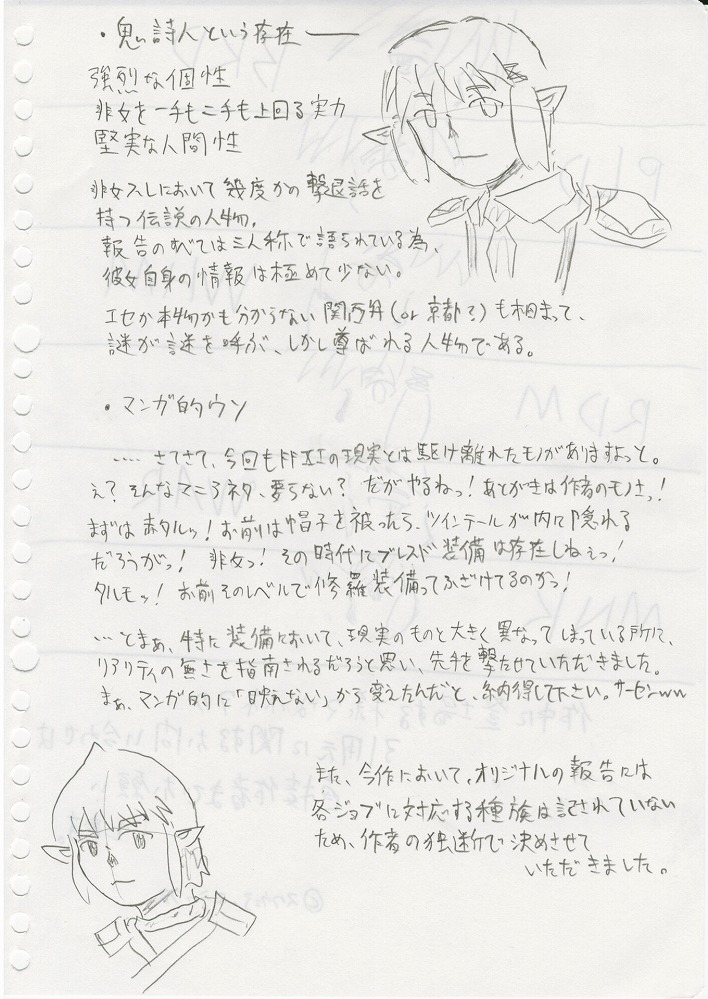 ・鬼い詩人という存在――
強烈な個性
非女を一手も二手も上回る実力
堅実な人間性
非女スレにおいて幾度かの撃退話を
持つ伝説の人物。
報告のすべては三人称で語られている為、
彼女自身の情報は極めて少ない。
エセか本物かも分からない関西弁(or 京都?)も相まって、
謎が謎を呼ぶ、しかし尊ばれる人物である。
・マンガ的ウソ
‥‥さてさて、今回もFF XIの現実とは駆け離れたモノがありますよっと。
え?そんなマニろネタ、要らない?だがやるねっ!あとがきは作者のモノさっ!
まずは赤タルッ!お前は帽子を被ったら、ツインテールが内に隠れる
だろうがっ!非女っ!その時代にブレスド装備は存在しねぇっ!
タルモッ!お前そのレベルで修羅装備ってふざけてるのかっ!
…とまぁ、特に装備において、現実のものと大きく異なってしまっている所に、
リアリティの無さを指南されるだろうと思い、先手を撃たせていただきました。
まぁ、マンガ的に「映えない」から変えたんだと、納得して下さい。サーセンww
また、今作において、オリジナルの報告には
各ジョブに対応する種族は記されていない
ため、作者の独断で決めさせて
いただきました。